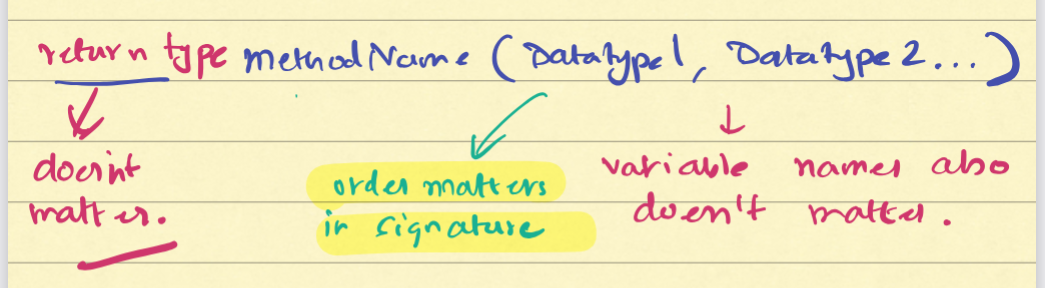 return type methodName ( Datatype1, Datatype 2 ... )
doesn't
matters.
order matters
in signature
variable names also
doesn't matter.